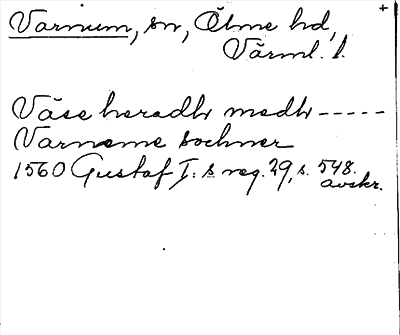 Varnum, sn, Ölme hd, +
Värml. l.
Väse heradh medh -----
Varneme sochner
1560 Gustaf I:s reg. 29, s. 548.
avskr.